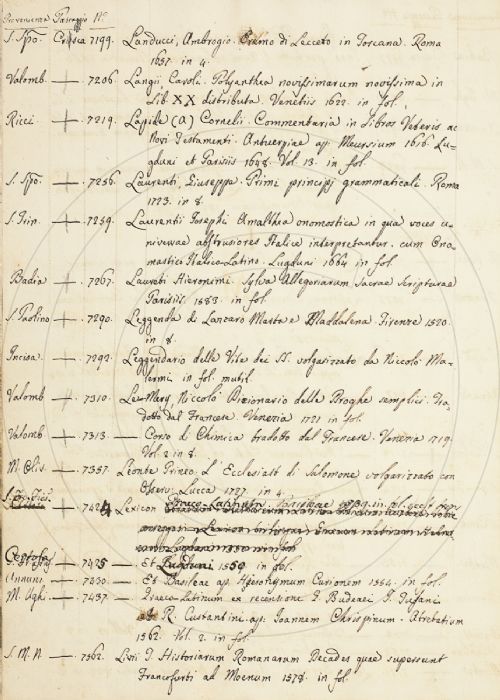 Provenienza Passaggio N°
S. Spo. Crusca 7199. Landucci, Ambrogio. Eremo di Lecceto in Toscana. Roma
1657. in 4.
Valomb. — 7206. Langii Caroli. Polyanthea novissimarum novissima in
Lib. XX distributa. Venetiis 1622. in fol.
Ricci. — 7219. Lapide (a) Corneli. Commentaria in Libros Veteris ac
Novi Testamenti. Antuerpiae ap. Meursium 1616. Lug-
duni et Parisiis 1648. Vol. 13. in fol.
S. Spo. — 7256. Laurenti, Giuseppe. Primi principj grammaticali. Roma
1773. in 8.
S. Trin. — 7259. Laurentii Josephi Amalthea onomastica in qua voces u-
niversae abstrusiores Italice interpretantur. cum Ono-
mastici Italico-Latino. Lugduni 1664 in fol.
Badia — 7267. Laureti Hieronimi. Sylva Allegoriarum Sacrae Scripturae
Parisiis. 1583. in fol.
S. Paolino — 7290. Leggenda di Lanzaro Marta e Maddalena. Firenze 1620.
in 8.
Incisa. — 7292. Leggendario delle Vite dei SS. volgarizzato da Niccolò Ma-
lermi in fol. mutil.
Valomb. — 7310. Le-Mery, Niccolò Dizionario delle Droghe semplici. Tra-
dotto dal Francese. Venezia 1721 in fol.
Valomb. — 7313. — Corso di Chimica tradotto dal Francese. Venezia 1719.
Vol. 2 in 8.
M. Oliv. — 7357. Leonte Prineo. L'Ecclesiaste di Salomone volgarizzato con
Osserv. Lucca 1727. in 4.
— 7424 Lexicon Graeco Latinum.
Certosa
— 7425 — Et Lugduni 1550. in fol.
Annunz. — 7430 — Et Basileae ap. Hieronymum Curionem 1554. in fol.
M. Ughi — 7437 — Graeco-Latinum ex recensione G. Budaei J. Tusani
R. Constantini ap. Joannem Chrispinum. Atrebatium
1562. Vol. 2. in fol.
S. M. N. — 7562. Livii T. Historiarum Romanarum Decades quae supersunt
Francofurti ad Moenum 1578. in fol.